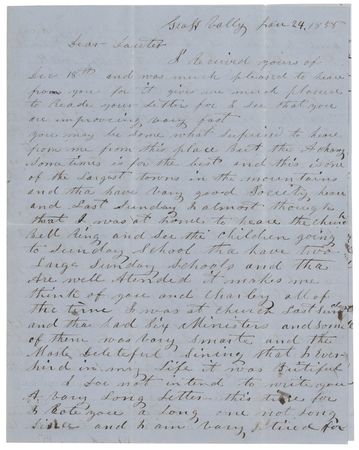 Grass Vally Jan 24, 1858
Dear Sister
I Recived yours of
Dec 18th and was much pleased to heare
from you for it gives me much plesure
to Reade your Letter for I see that you
are improveing vary fast
you may be some what suprised to heare
from me from this place But the
Sometimes is for the best and this is one
of the Largest towns in the mountains
and tha have vary good Society here
and Last Sunday I almost though
that I was at home to heare the church
Bell Ring and see the children going
to Sunday School tha have two
Large Sunday Schools and tha
Are well Atended it makes me
think of you and Charley all of
the time I was at church Last Sunday
and tha had Six Ministers and some
of them was vary Smarte and the
Moste Deliteful Sining that I Ever
hird in my Life it was Butiful
I doe not intend to write you
A vary Long Letter this time for
I Rote you a Long one not Long
Since and I am vary tired for